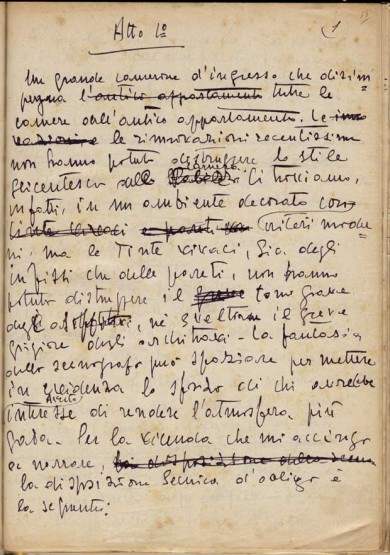 Atto 1º
1
Un grande camerone d'ingresso che disim=
pegna l'antico appartamento tutte le
camere dell'antico appartamento. Le
e le rinnovazioni recentissime
non hanno potuto distruggere lo stile
seicentesco delle Ci troviamo,
infatti, in un ambiente decorato con
tinte vivaci e pareti criteri moder
ni, ma le tinte vivaci, sia degli
infissi che delle pareti, non hanno
potuto distruggere il tono grave
degli, nè sveltire il greve
grigiore degli architravi - La fantasia
dello scenografo può spaziare per mettere
in evidenza lo sforzo di chi avrebbe
avuto
interesse di rendere l'atmosfera più
gaia. Per la vicenda che mi accingo
a narrare, la disposizione della scena
la disposizione tecnica d'obbligo è
la seguente: